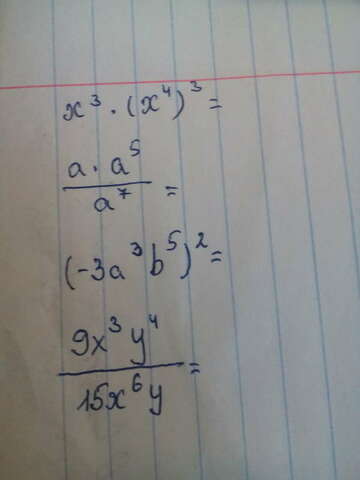 x³ · (x⁴)³ =
a · a⁵
a⁷ =
(-3a³b⁵)² =
9x³y⁴
15x⁶y =